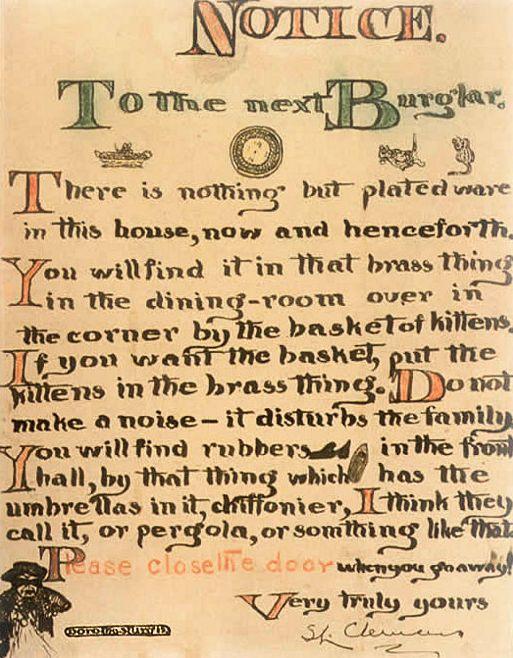 NOTICE.
To the next Burglar.
There is nothing but plated ware
in this house, now and henceforth.
You will find it in that brass thing
in the dining-room over in
the corner by the basket of kittens.
If you want the basket, put the
kittens in the brass thing. Do not
make a noise — it disturbs the family.
You will find rubbers in the front
hall, by that thing which has the
umbrellas in it, chiffonier, I think they
call it, or pergola, or somthing like that.
Please close the door when you go away!
Very truly yours
S.L. Clemens
Dorothy Sturgis